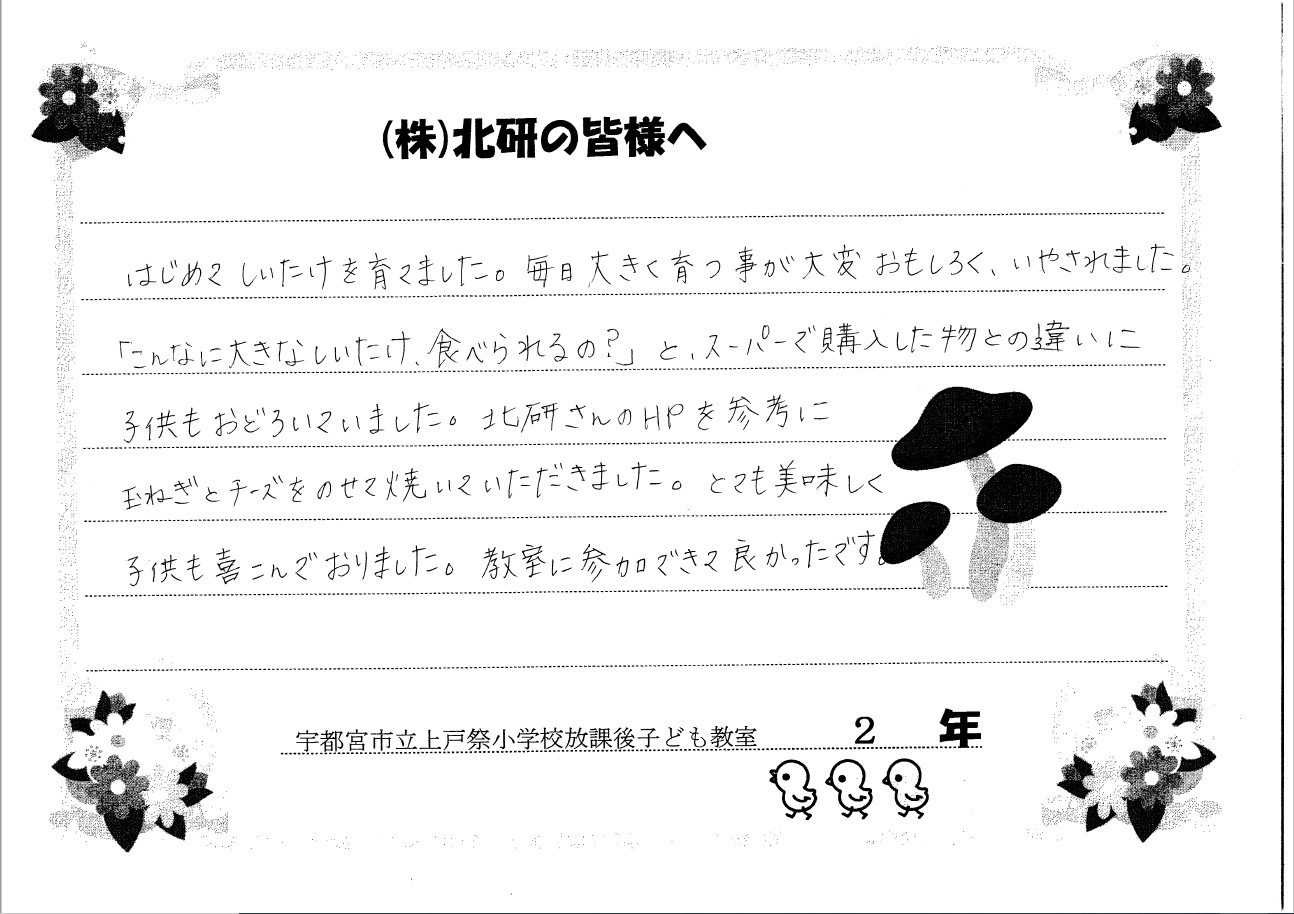 (株)北研の皆様へ
はじめてしいたけを育てました。毎日大きく育つ事が大変おもしろく、いやされました。
「こんなに大きなしいたけ、食べられるの?」と、スーパーで購入した物との違いに
子供もおどろいていました。北研さんのHPを参考に
玉ねぎとチーズをのせて焼いていただきました。とても美味しく
子供も喜こんでおりました。教室に参加できて良かったです。
宇都宮市立上戸祭小学校放課後子ども教室 2 年